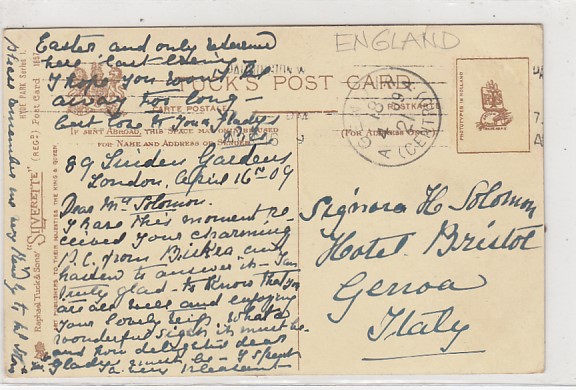 ENGLAND
TUCK'S POST CARD
CARTE POSTALE
POSTKARTE
(IF SENT ABROAD, THIS SPACE MAY BE USED
FOR NAME AND ADDRESS OF SENDER)
(FOR ADDRESS ONLY)
PHOTOTYPED IN HOLLAND
(CENTRO)
HYDE PARK Series I.
"SILVERETTE" (REGD) Post Card
Raphael Tuck & Sons'
ART PUBLISHERS TO THEIR MAJESTIES THE KING & QUEEN
89 Linden Gardens
London, April 16th 09
Dear Mrs Solomon.
I have this moment re-
ceived your charming
P.C. from and
hasten to answer it - I am
truly glad to know that you
are all well and enjoying
your lovely What
wonderful sights it must be
and how delighted dear
Gladys must be - I spent
a very pleasant
Easter, and only returned
here last
I hope you won't be
away too long -
best love to you & Gladys
Please remember me very kindly to
Signora H. Solomon
Hotel Bristol
Genoa
Italy